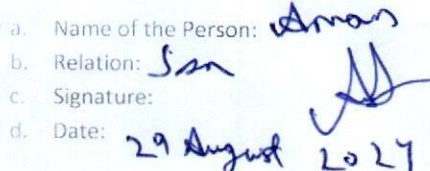 a. Name of the Person: Arnav
b. Relation: Son
c. Signature:
d. Date: 29 August 2024